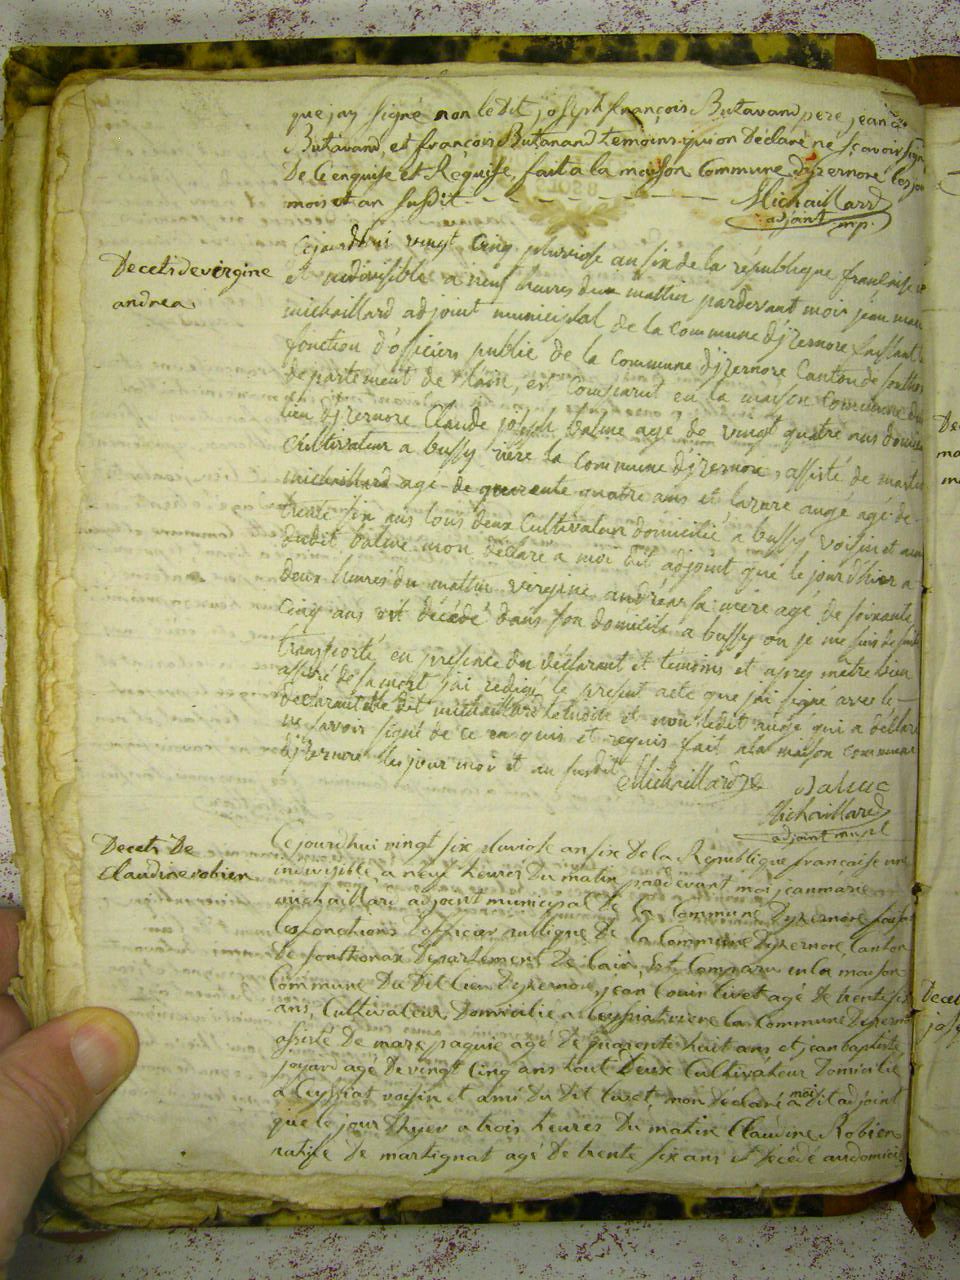 que jay signé non le dit joseph françois Butavand pere jean
Butavand, et françois Butavand temoins qui on Déclaré ne sçavoir signé
De ce enquise et Requise, fait a la maison Commune dyzernore les jour
mois et an susdit
Michaillard
adjoint mp.
Decets de virgine
andrea
Cejourdhui vingt cinq pluviose an six de la republique française
et indivisible a neuf heures dux mattin pardevant moi jean marie
michaillard adjoint municipal de la commune dizernore faissant
fonction d'officiers publie de la commune dizernore Canton de sonthonax
departement de lain, est Comparut en la maison commune du
lieu dizernore Claude joseph balme agé de vingt quatre ans domicilié
Cultivateur a bussy riere la commune dizernore, assisté de martin
michaillard agé de quarente quatre ans et lazare augé agé de
trente six ans tous deux Cultivateur domicilié a bussy voisin et ami
dudit balme mon déclare a moi dit adjoint que le jour dhier a
deux heures du mattin vergine andréa sa mere agé de soixante
Cinq ans est décédé dans son domicile a bussy ou je me suis de suite
transporté en presence du déclarant et temoins et apres mêtre bien
assuré de sa mort j'ai redigé le present acte que j'ai signé avec le
declarant et le dit michaillard et non ledit augé qui a déclaré
ne savoir signé de ce enquis et requis fait a la maison commune
dizernore les jour moi et an susdit
Michaillard Balme
Michaillard
adjoint mupl
Decets De
Claudine robien
Cejourdhui vingt six pluviose an six De la Republique francaise une
indivisible, a neuf heures Du matin pardevant moi jeanmarie
michaillard adjoint municipal De la Commune Dyzernore faisant
les fonctions D'officier publique De la Commune Dyzernore, Canton
De sonthonax Departement De lain, Est Comparu en la maison
Commune Du Dit lieu Dyzernore, jean Louis livet agé De trente six
ans, Cultivateur Domicilie a Ceyssiat riere la Commune Dyzernore
assisté De marx paquie agé De quarente huit ans et jean baptiste
joyard agé De vingt Cinq ans tout Deux Cultivateur Domicilié
a Ceyssiat voisin et ami du dit livet, mon declaré a moi Dit adjoint
que le jour Dhyer a trois heures Du matin Claudine Robien
natife De martignat agé De trente six ans et Décédé au domicile